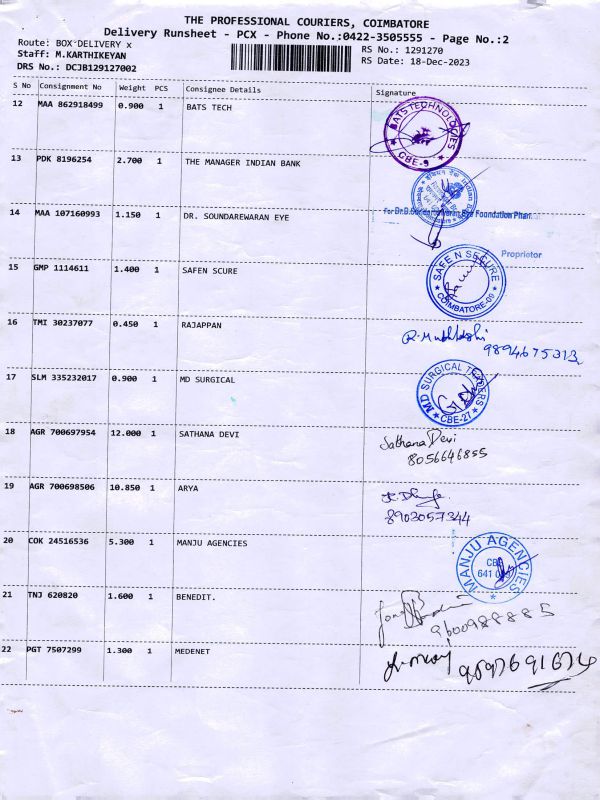 THE PROFESSIONAL COURIERS, COIMBATORE
Delivery Runsheet - PCX - Phone No.:0422-3505555 - Page No.:2
Route: BOX DELIVERY x
RS No.: 1291270
Staff: M.KARTHIKEYAN
RS Date: 18-Dec-2023
DRS No.: DCJB129127002
S No Consignment No Weight PCS Consignee Details Signature
12 MAA 862918499 0.900 1 BATS TECH
BATS TECHNOLOGIES
CBE-9
13 PDK 8196254 2.700 1 THE MANAGER INDIAN BANK
14 MAA 107160993 1.150 1 DR. SOUNDAREWARAN EYE
For Dr.B. Eye Foundation
Proprietor
15 GMP 1114611 1.400 1 SAFEN SCURE
SAFE N SECURE
COIMBATORE
16 TMI 30237077 0.450 1 RAJAPPAN
9894675313
17 SLM 335232017 0.900 1 MD SURGICAL
MD SURGICAL TRADERS
CBE-27
18 AGR 700697954 12.000 1 SATHANA DEVI
Sathana Devi
8056646855
19 AGR 700698506 10.850 1 ARYA
8903057344
20 COK 24516536 5.300 1 MANJU AGENCIES
MANJU AGENCIES
CBE
641
21 TNJ 620820 1.600 1 BENEDIT.
9600988885
22 PGT 7507299 1.300 1 MEDENET